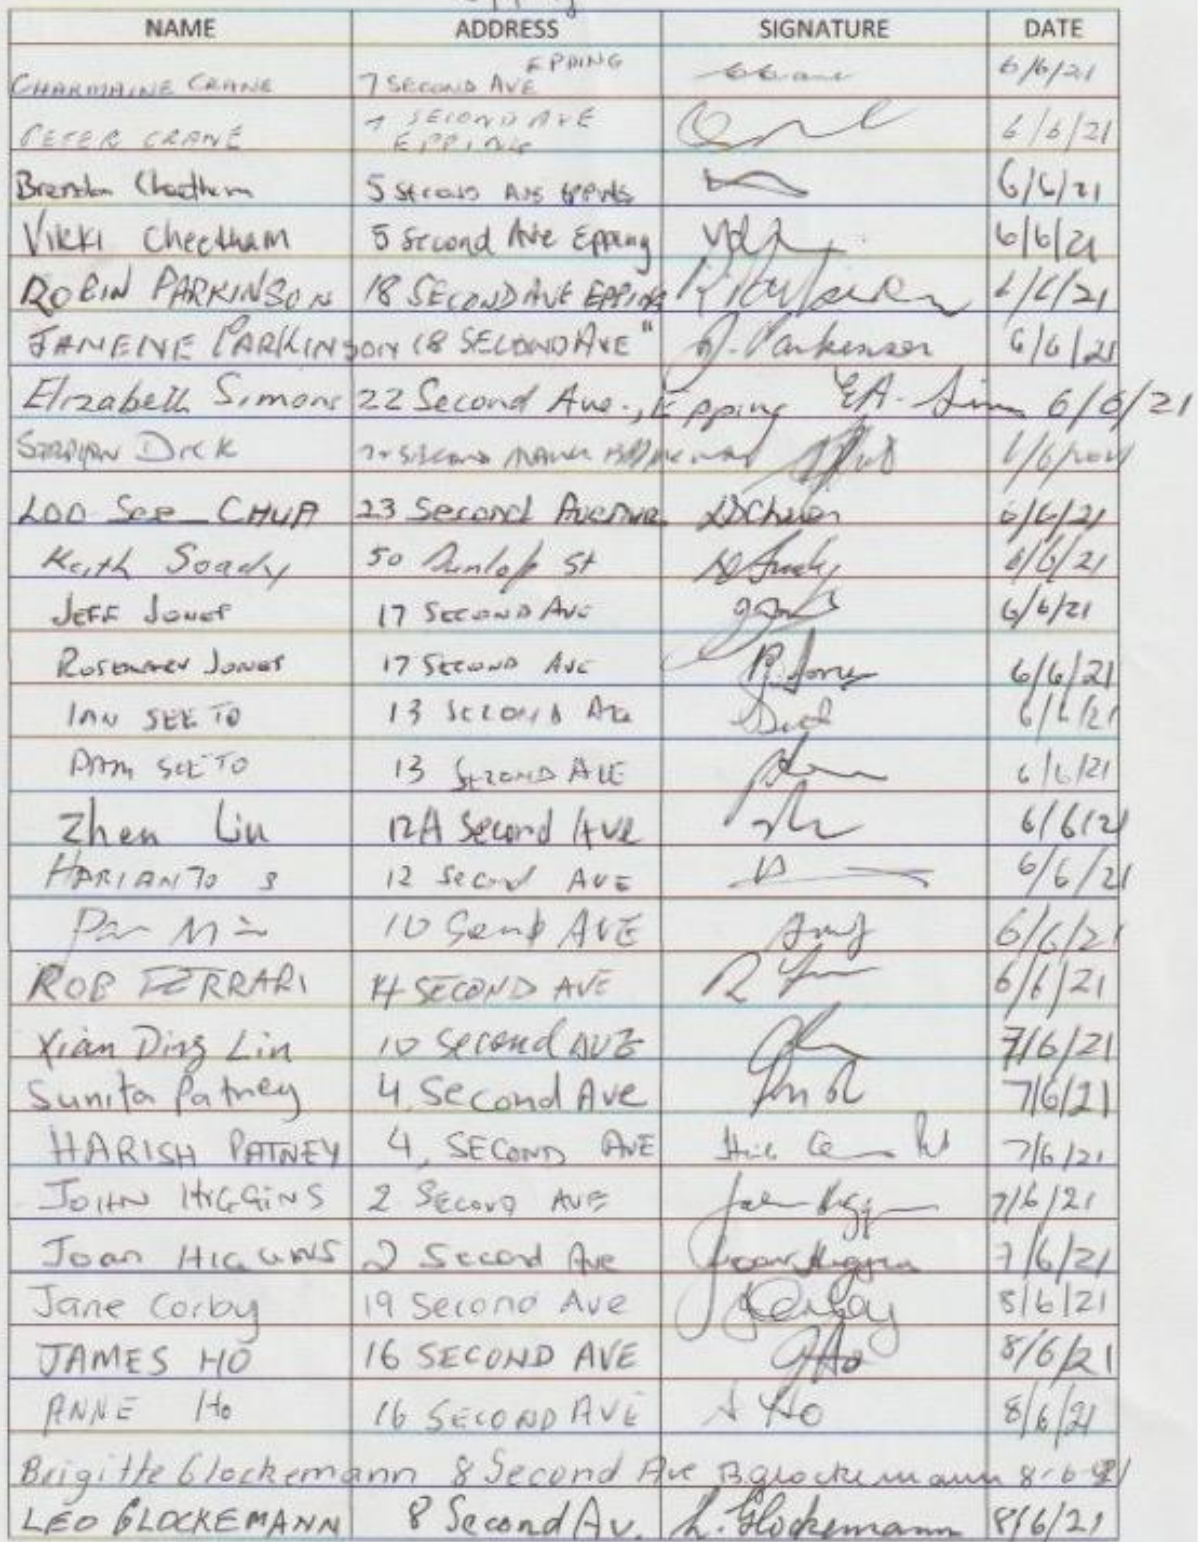 NAME ADDRESS SIGNATURE DATE
CHARMAINE CRANE 7 SECOND AVE EPPING 6/6/21
PETER CRANE 7 SECOND AVE EPPING 6/6/21
Brendon Cheetham 5 Second Ave Epping 6/6/21
Vikki Cheetham 5 Second Ave Epping 6/6/21
ROBIN PARKINSON 18 SECOND AVE EPPING 6/6/21
JANENE PARKINSON 18 SECOND AVE " J. Parkinson 6/6/21
Elizabeth Simons 22 Second Ave., Epping EA. 6/6/21
Dick
LOO See CHUA 23 Second Avenue 6/6/21
Keith Soady 50 Dunlop St 6/6/21
JEFF JONES 17 SECOND AVE 6/6/21
ROSEMARY JONES 17 SECOND AVE R. Jones 6/6/21
IAN SEE TO 13 SECOND AVE 6/6/21
PAM SEE TO 13 SECOND AVE 6/6/21
Zhen Liu 12A Second AVE 6/6/21
HARIANTO S 12 Second AVE 6/6/21
Pan Min 10 AVE 6/6/21
ROB FERRARI 14 SECOND AVE 6/6/21
Xian Ding Lin 10 Second AVE 7/6/21
Sunita Patney 4 Second Ave 7/6/21
HARISH PATNEY 4, SECOND AVE 7/6/21
JOHN HIGGINS 2 SECOND AVE John Higgins 7/6/21
Joan HIGGINS 2 Second Ave Joan Higgins 7/6/21
Jane Corby 19 Second Ave JCorby 8/6/21
JAMES HO 16 SECOND AVE JHo 8/6/21
ANNE Ho 16 SECOND AVE A Ho 8/6/21
Brigitte Glockemann 8 Second Ave B Glockemann 8-6-21
LEO GLOCKEMANN 8 Second Av. L. Glockemann 8/6/21